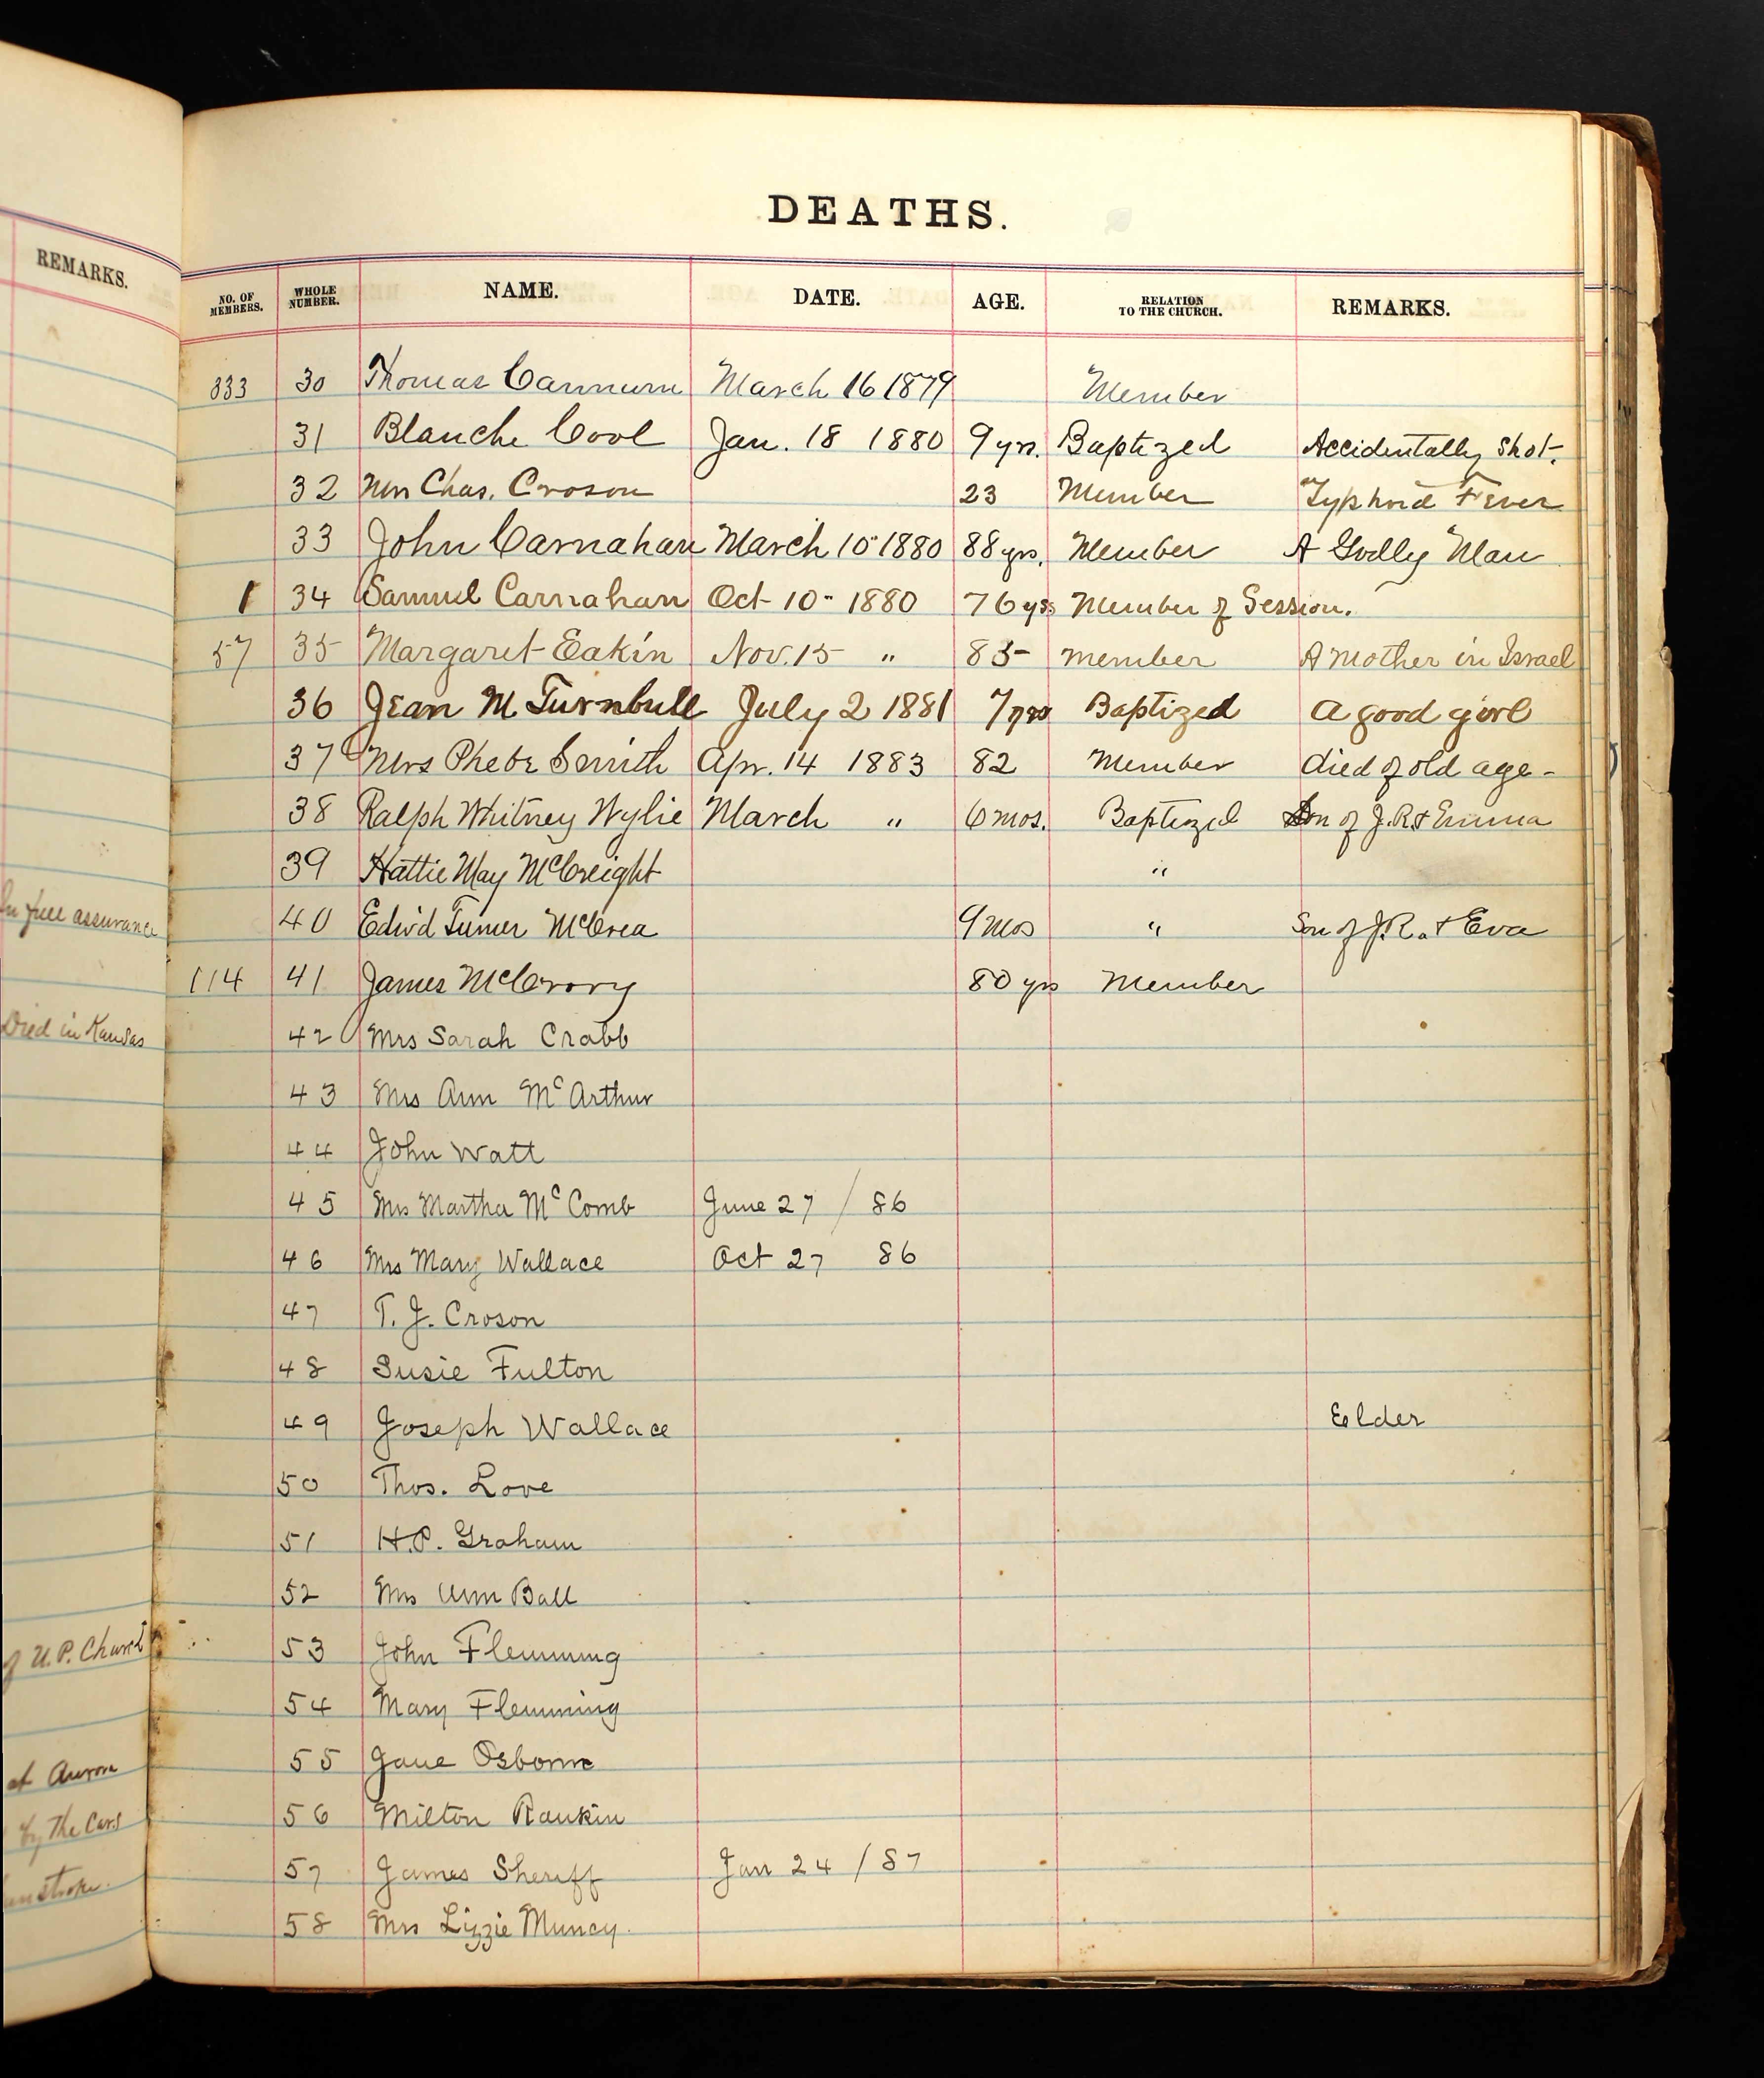 REMARKS.
In full assurance
Died in Kansas
of U.P. Church
at Aurora
by the Cars
DEATHS.
NO. OF MEMBERS. WHOLE NUMBER. NAME. DATE. AGE. RELATION TO THE CHURCH. REMARKS.
333 30 Thomas March 16 1879 Member
31 Blanche Cool Jan. 18 1880 9 yrs. Baptized Accidentally Shot.
32 Mrs Chas. Croson 23 Member Typhoid Fever
33 John Carnahan March 10 1880 88 yrs. Member A Godly Man
1 34 Samuel Carnahan Oct 10 - 1880 76 yrs Member of Session.
57 35 Margaret Eakin Nov. 15 " 85 member A Mother in Israel
36 Jean M. Turnbull July 2 1881 7 yrs Baptized a good girl
37 Mrs Phebe Smith Apr. 14 1883 82 Member died of old age -
38 Ralph Whitney Wylie March " 6 mos. Baptized Son of J.R. & Emma
39 Hattie May McCreight "
40 Edw'd Turner McCrea 9 Mos " Son of J.R. & Eva
114 41 James McCrory 80 yrs Member
42 Mrs Sarah Crabb
43 Mrs Ann McArthur
44 John Watt
45 Mrs Martha McComb June 27 / 86
46 Mrs Mary Wallace Oct 27 86
47 T. J. Croson
48 Susie Fulton
49 Joseph Wallace Elder
50 Thos. Love
51 H.P. Graham
52 Mrs Ann Ball
53 John Flemming
54 Mary Flemming
55 Jane Osborne
56 Milton Rankin
57 James Sheriff Jan 24 / 87
58 Mrs Lizzie Muncy.